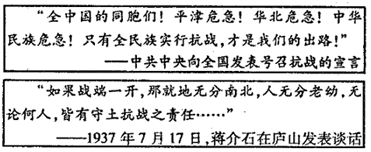 “全中国的同胞们！平津危急！华北危急！中华
民族危急！只有全民族实行抗战，才是我们的出路！”
——中共中央向全国发表号召抗战的宣言
“如果战端一开，那就地无分南北，人无分老幼，无
论何人，皆有守土抗战之责任……”
——1937年7月17日，蒋介石在庐山发表谈话